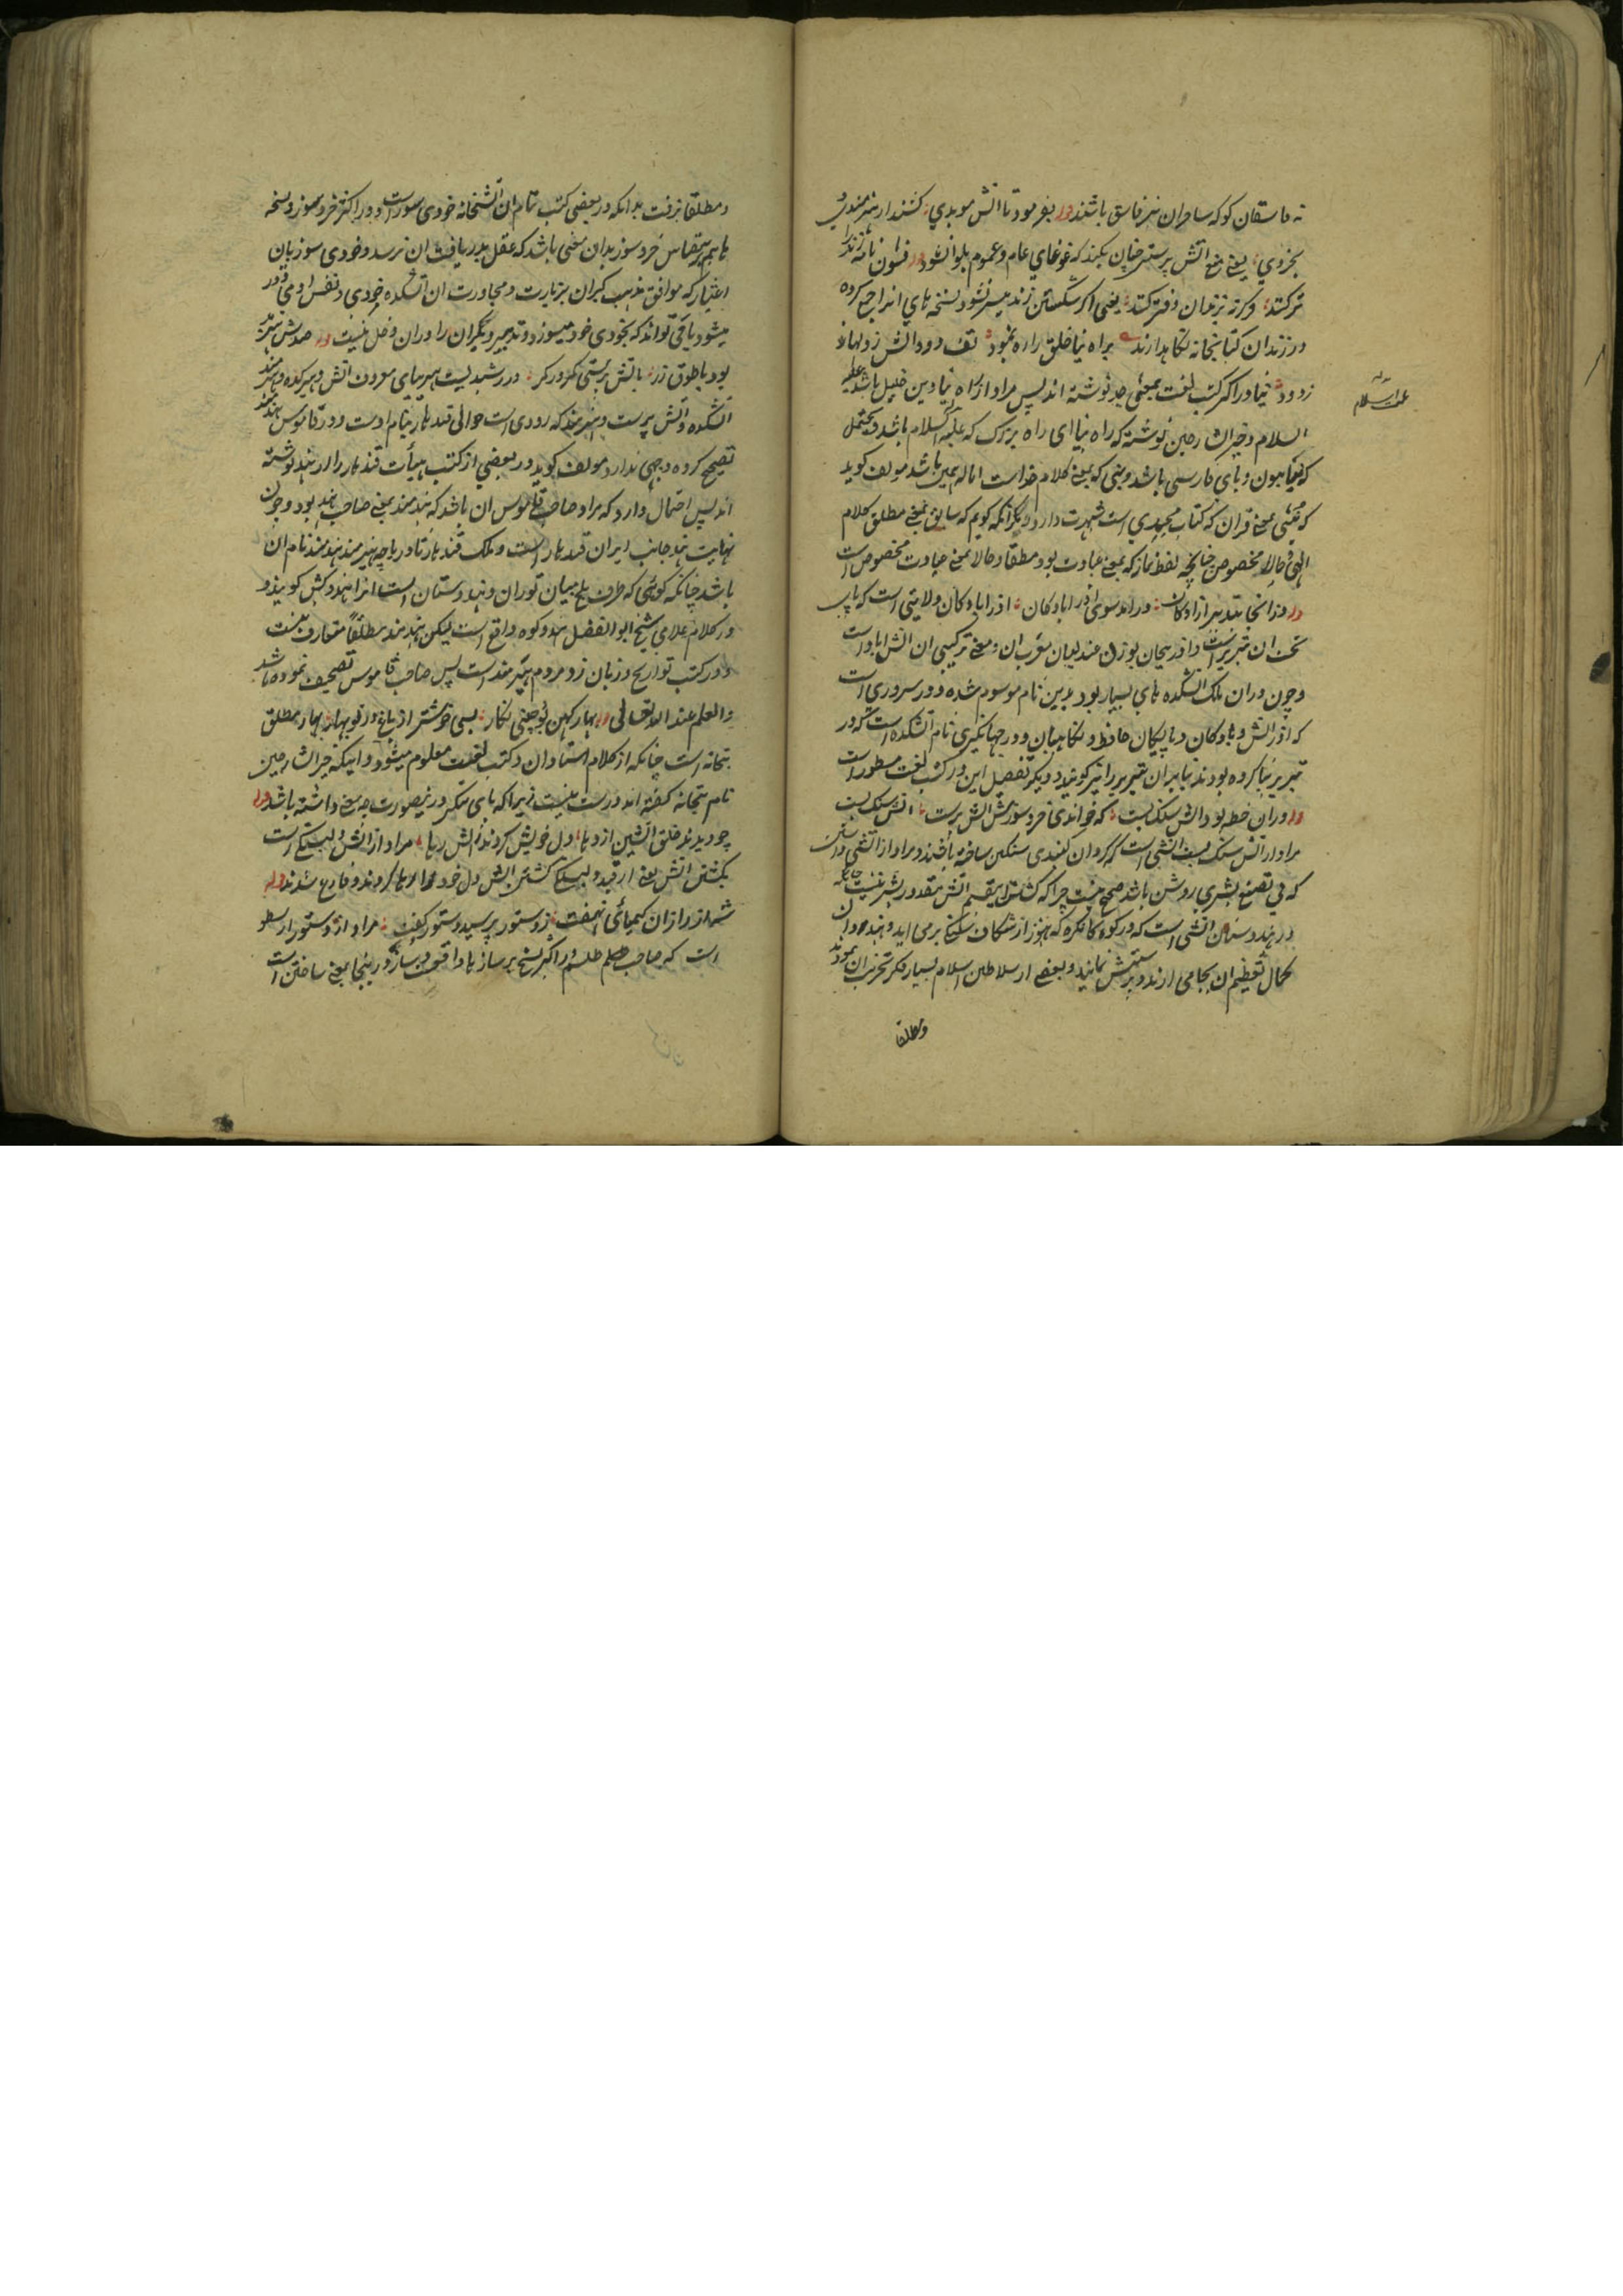 نه فاسقان کو که ساحران نیز فاسق باشند وله بفرمود تا آتش موبدی کشند از هنرمندی و
بخردی یعنی منع آتش پرستی چنان بکند که غوغای عام و عموم بلوا نشود وله فسون نامه زند را
تر کنند وگرنه بزندان دفتر کنند یعنی اگر شستن زند میسر نشود نسخه های آنرا جمع کرده
در زندان کتابخانه نگاهدارند براه نیا خلق را ره نمود تف و دود آتش ز دلها
زدود نیا در اکثر کتب لغت بمعنی جد نوشته اند پس مراد از راه نیا دین خلیل باشد علیه
السلام و خیر الشارحین نوشته که راه نیا ای راه بزرگ که علیه السلام باشد و محتمل
که بنون و بای فارسی باشد و نبی که بمعنی کلام خداست اماله همین باشد مولف گوید
که نبی بمعنی قران که کتاب مجیدی است شهرت دارد مگر آنکه گویم که سابق بمعنی مطلق کلام
الهی و حالا مخصوص چنانچه لفظ نماز که بمعنی عبادت بود مطلقا و حالا بمعنی عبادت مخصوص است
وله وز انجا بتدبیر آزادگان درآمد سوی آذرابادگان آذرابادگان ولایتی است که پای
تخت آن تبریز است و آذربیجان بوزن عندلیبان معرب آن و معنی ترکیبی آن آتش آباد است
و چون در آن ملک آتشکده های بسیار بود بدین نام موسوم شده و در سروری است
که آذر آتش و بادگان و بایگان حافظ و نگاهبان و در جهانگیری نام آتشکده است که در
تبریز بنا کرده بودند بنابران تبریز را نیز گویند و دیگر تفصیل این در کتب لغت مسطور است
وله در آن خطه بود آتش سنگ بست که خواندی خردسوزش آتش پرست آتش سنگ بست
مراد از آتش سنگ بست آتشی است که گرد آن گنبدی سنگین ساخته باشند و مراد از آتشی داشتن
که بی تصنع بشری روشن باشد صحیح نیست چرا که کشتن اینقسم آتش مقدور بشر نیست چنانکه
در هندوستان آتشی است که در کوه کانگره که هنوز از شکاف سنگها برمی آید و هندوان
کمال تعظیم آن بجا می آرند و پرستش نمایند و بعضی از سلاطین اسلام بسیار فکر تخریب آن نمودند
و مطلقا
علیه السلام
و مطلقا نرفت بدانکه در بعضی کتب نام آن آتشخانه خودی سوز است و در اکثر خردسوز و نسخه
اعتبار که موافق مذهب گبران بزیارت و مجاورت آن آتشکده خودی و نفس او می
میشود یا قی تواند که بخودی خود میسوزد و تدبیر دیگران را در آن دخل نیست وله صدش هیربد
بود با طوق زر بآتش پرستی گره در کمر در رشیدیست هیر بیای معروف آتش و هیرکده و هیرمند
آتشکده و آتش پرست و هیرمند که رودی است حوالی قندهار بنام اوست و در قاموس هندمند
تصحیح کرده وجهی ندارد مولف گوید در بعضی از کتب هیأت قندهار را از هند نوشته
اند پس احتمال دارد که مراد صاحب قاموس آن باشد که هندمند بمعنی صاحب هند بود و چون
نهایت هند جانب ایران قندهار است و ملک قندهار تا دریاچه هیرمند هندمند نام آن
باشد چنانکه کوهی که طرف بلخ میان توران و هندوستان است آنرا هندوکش گویند و
در کلام علامی شیخ ابو الفضل هندوکوه واقع است لیکن هندمند مطلقا متعارف نیست
و در کتب تواریخ و زبان زد مردم هیرمند است پس صاحب قاموس تصحیف نموده باشد
والعلم عند الله تعالی وله بهار کهن بود چینی نگار بسی خوشتر از باغ در نوبهار بهار مطلق
بتخانه است چنانکه از کلام استادان و کتب لغت معلوم میشود و اینکه خیر الشارحین
نام بتخانه گفته اند درست نیست زیرا که بای تنکیر درینصورت چه معنی داشته باشد وله
چو دیدند خلق آتشین اژدها دل خویش کردند ز آتش رها مراد از آتش دلبستگی است
بکشتن آتش یعنی از قید دلبستگی کشتن آتش دل خود را رها کردند و فارغ شدند وله
شه از راز آن کیمیای نهفت ز دستور پرسید و دستور گفت مراد از دستور ارسطو
است که صاحب علم طلسم و اکثر نسخ بر سازها واقف بسازد درینجا بمعنی ساختن است